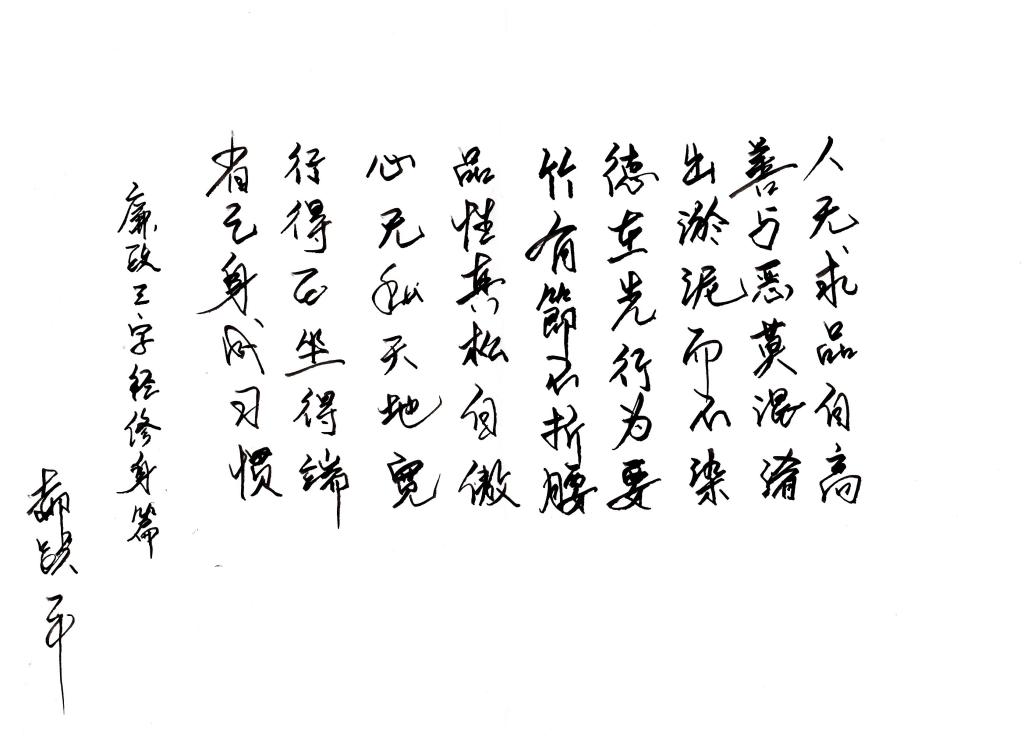 人无求品自高
善与恶莫混淆
出淤泥而不染
德在先行为要
竹有節不折腰
品性真松自傲
心无私天地宽
行得正坐得端
省己身成习惯
廉政三字经修身篇